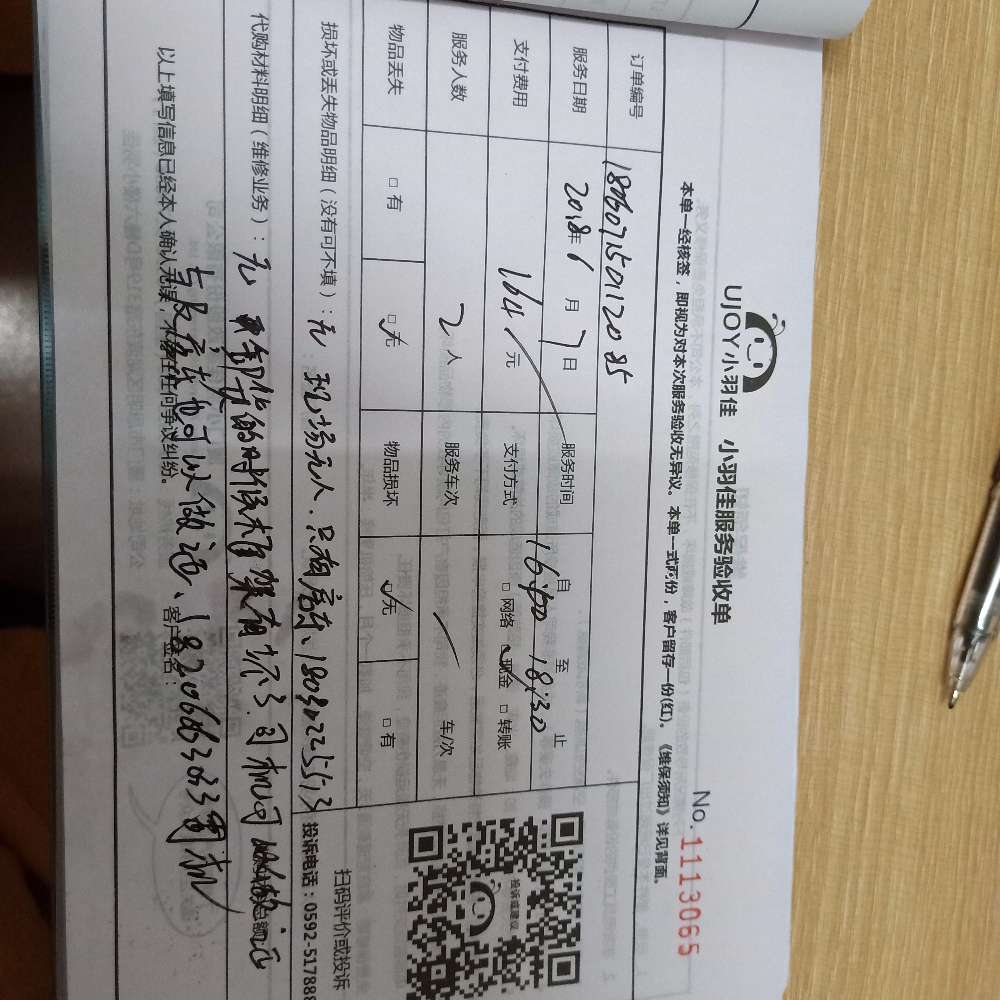 UJOY小羽佳 小羽佳服务验收单
No.1113065
本单一经核签，即视为对本次服务验收无异议。本单一式两份，客户留存一份(红)。《维保须知》详见背面。
订单编号 180607150112085
服务日期 2018年6月7日 服务时间 自16:00至18:30止
支付费用 164元 支付方式 □网络 ☑现金 □转账
服务人数 2人 服务车次 车/次
物品丢失 □有 ☑无 物品损坏 ☑无 □有
投诉或建议
扫码评价或投诉
投诉电话：0592-517888
损坏或丢失物品明细（没有可不填）：无 现场无人，只有房东、18030225513
代购材料明细（维修业务）：无 卸货的时候木有架有坏了司机可以做证
与及房东也可以做证、18206063033司机
以上填写信息已经本人确认无误，不存在任何争议纠纷。 客户签名：